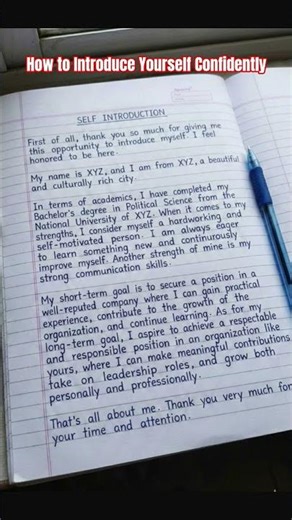 How to Introduce Yourself Confidently
SELF INTRODUCTION
First of all, thank you so much for giving me
this opportunity to introduce myself. I feel
honored to be here.
My name is XYZ, and I am from XYZ, a beautiful
and culturally rich city.
In terms of academics, I have completed my
Bachelor's degree in Political Science from the
National University of XYZ. When it comes to my
strengths, I consider myself a hardworking and
self-motivated person. I am always eager
to learn something new and continuously
improve myself. Another strength of mine is my
strong communication skills.
My short-term goal is to secure a position in a
well-reputed company where I can gain practical
experience, contribute to the growth of the
organization, and continue learning. As for my
long-term goal, I aspire to achieve a respectable
and responsible position in an organization like
yours, where I can make meaningful contributions,
take on leadership roles, and grow both
personally and professionally.
That's all about me. Thank you very much for
your time and attention.